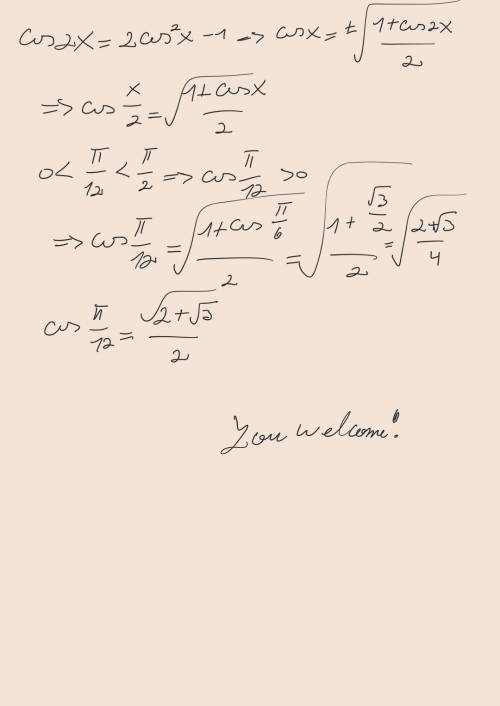 cos2x = 2cos²x -1 -> cosx = ±√((1+cos2x)/2)
=> cos x/2 = √((1+cosx)/2)
0 < π/12 < π/2 => cos π/12 > 0
=> cos π/12 = √((1+cos π/6)/2) = √((1+√3/2)/2) = √((2+√3)/4)
cos π/12 = √(2+√3)/2
You welcome!